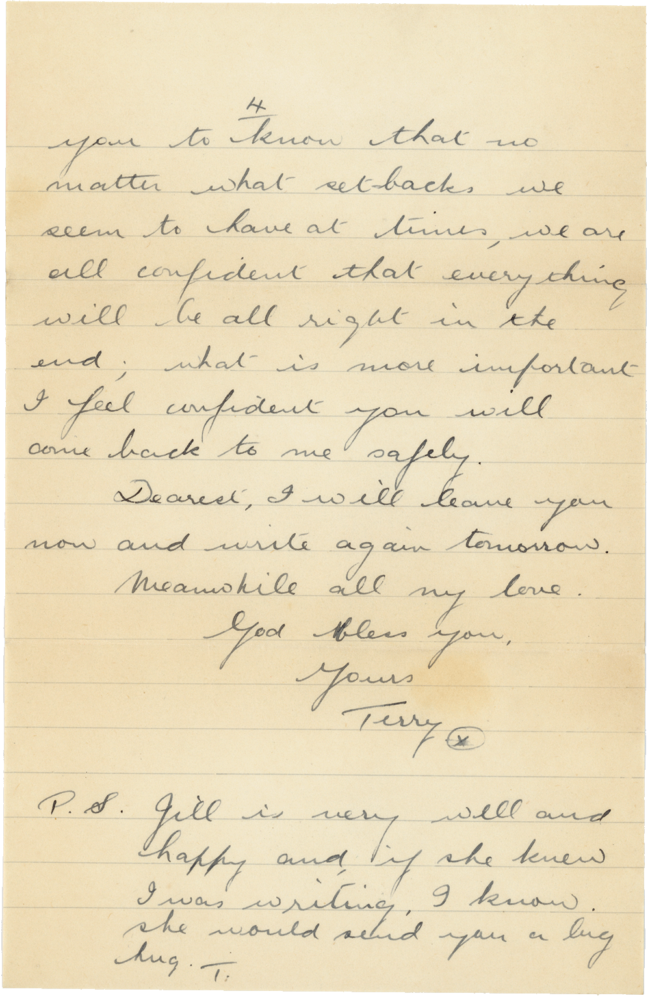 4
you to know that no
matter what set-backs we
seem to have at times, we are
all confident that everything
will be all right in the
end; what is more important
I feel confident you will
come back to me safely.
Dearest, I will leave you
now and write again tomorrow.
Meanwhile all my love.
God bless you,
Yours
Terry x
P.S. Jill is very well and
happy and, if she knew
I was writing, I know.
she would send you a big
hug. T.